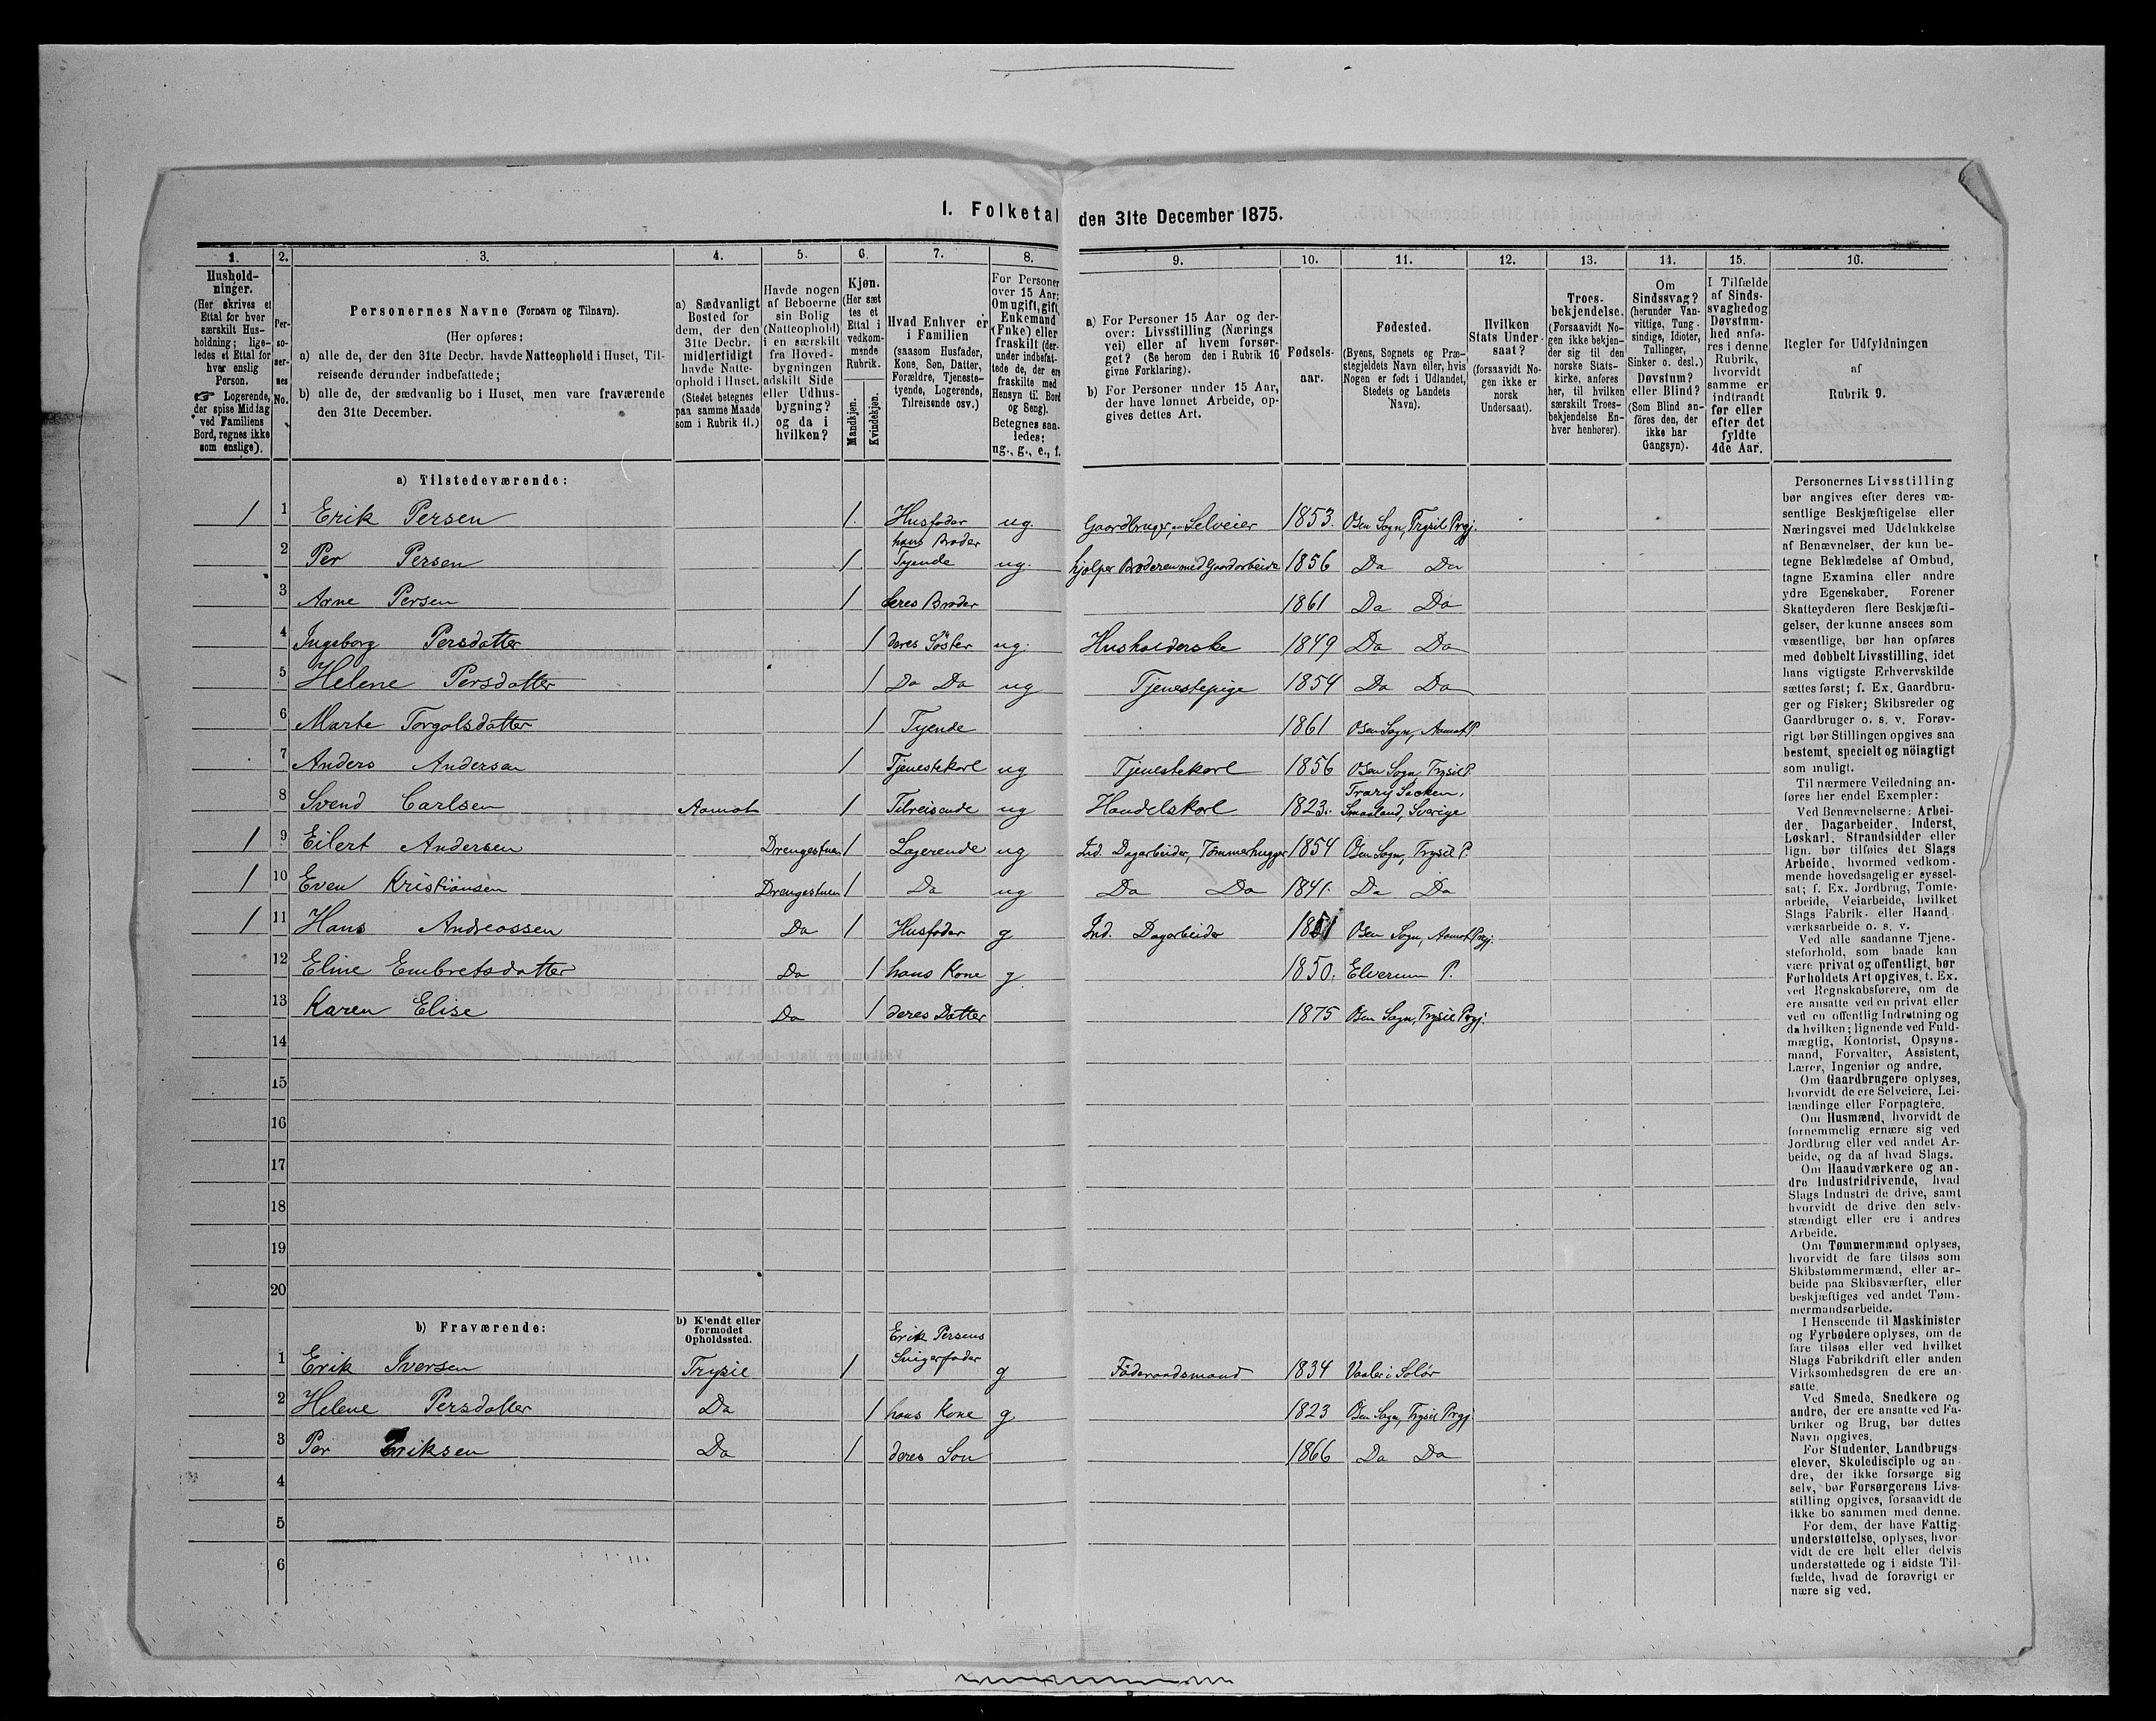 I. Folketal den 31te December 1875.
1. 2. 3. 4. 5. 6. 7. 8. 9. 10. 11. 12. 13. 14. 15. 16.
Hushold-
ninger.
(Her skrives et
Ettal for hver
særskilt Hus-
holdning; lige-
ledes et Ettal for
hver enslig
Person.
☞ Logerende,
der spise Middag
ved Familiens
Bord, regnes ikke
som enslige).
Per-
so-
ner-
nes
No.
Personernes Navne (Fornavn og Tilnavn).
(Her opføres:
a) alle de, der den 31te Decbr. havde Natteophold i Huset, Til-
reisende derunder indbefattede;
b) alle de, der sædvanlig bo i Huset, men vare fraværende
den 31te December.
a) Sædvanligt
Bosted for
dem, der den
31te Decbr.
midlertidigt
havde Natte-
ophold i Huset.
(Stedet betegnes
paa samme Maade
som i Rubrik 11.)
Havde nogen
af Beboerne
sin Bolig
(Natteophold)
i en særskilt
fra Hoved-
bygningen
adskilt Side
eller Udhus-
bygning?
og da i
hvilken?
Kjøn.
(Her sæt
tes et
Ettal i
vedkom-
mende
Rubrik.
Mandkjøn.
Kvindekjøn.
Hvad Enhver er
i Familien
(saasom Husfader,
Kone, Søn, Datter,
Forældre, Tjeneste-
tyende, Logerende,
Tilreisende osv.)
For Personer
over 15 Aar:
Om ugift, gift,
Enkemand
(Enke) eller
fraskilt (der-
under indbefat-
tede de, der ere
fraskilte med
Hensyn til Bord
og Seng).
Betegnes saa-
ledes:
ug., g., e., f.
a) For Personer 15 Aar og der-
over: Livsstilling (Nærings
vei) eller af hvem forsør-
get? (Se herom den i Rubrik 16
givne Forklaring).
b) For Personer under 15 Aar,
der have lønnet Arbeide, op-
gives dettes Art.
Fødsels-
aar.
Fødested.
(Byens, Sognets og Præ-
stegjeldets Navn eller, hvis
Nogen er født i Udlandet,
Stedets og Landets
Navn).
Hvilken
Stats Under-
saat?
(forsaavidt No-
gen ikke er
norsk
Undersaat).
Troes-
bekjendelse.
(Forsaavidt No-
gen ikke bekjen-
der sig til den
norske Stats-
kirke, anføres
her, til hvilken
særskilt Troes-
bekjendelse En-
hver henhører).
Om
Sindssvag?
(herunder Van-
vittige, Tung-
sindige, Idioter,
Tullinger,
Sinker o. desl.)
Døvstum?
eller Blind?
(Som Blind an-
føres den, der
ikke har
Gangsyn).
I Tilfælde
af Sinds-
svaghed og
Døvstum-
hed anfø-
res i denne
Rubrik,
hvorvidt
samme er
indtraadt
før eller
efter det
fyldte
4de Aar.
Regler for Udfyldningen
af
Rubrik 9.
a) Tilstedeværende:
1 1 Erik Persen 1. Husfader ug. Gaardbruger, Selveier 1853. Osen Sogn, Trysil Prgj.
2 Per Persen 1 hans Broder Tyende ug. hjelper Broderen med Gaardarbeide 1856 Do Do
3 Arne Persen 1 deres Broder 1861 Do Do
4 Ingeborg Persdatter 1 deres Söster ug. Husholderske 1849 Do Do
5 Helene Persdatter 1 Do Do ug Tjenestepige 1854 Do Do
6 Marte Torgalsdatter 1 Tyende 1861 Osen Sogn, Aamot P.
7 Anders Andersen 1 Tjenestekarl ug Tjenestekarl 1856 Osen Sogn, Trysil P.
8 Svend Carlsen Aamot 1 Tilreisende ug Handelskarl 1823. Smaaland, Sverige
1 9 Eilert Andersen Drengestuen 1 Logerende ug Ind. Dagarbeider, Tömmerhugger 1854 Osen Sogn, Trysil P.
1 10 Even Kristiansen Drengestuen 1 Do ug Do Do 1841. Do Do
1 11 Hans Andreassen Do 1 Husfader g Ind. Dagarbeider 1851 Osen Sogn, Aamot Prgj.
12 Eline Embretsdatter Do 1 hans Kone g. 1850. Elverum P.
13 Karen Elise Do 1 deres Datter 1875 Osen Sogn, Trysil Prgj.
14
15
16
17
18
19
20
b) Fraværende:
b) Kjendt eller
formodet
Opholdssted.
1 Erik Iversen Trysil 1 Erik Persens Svigerfader g Föderaadsmand 1834 Vaaler i Solör
2 Helene Persdatter Do 1 hans Kone g. 1823 Osen Sogn, Trysil Prgj.
3 Per Eriksen Do 1 deres Son 1866 Do Do
4
5
6
Personernes Livsstilling
bør angives efter deres væ-
sentlige Beskjæftigelse eller
Næringsvei med Udelukkelse
af Benævnelser, der kun be-
tegne Beklædelse af Ombud,
tagne Examina eller andre
ydre Egenskaber. Forener
Skatteyderen flere Beskjæfti-
gelser, der kunne ansees som
væsentlige, bør han opføres
med dobbelt Livsstilling, idet
hans vigtigste Erhvervskilde
sættes først; f. Ex. Gaardbru-
ger og Fisker; Skibsreder og
Gaardbruger o. s. v. Forøv-
rigt bør Stillingen opgives saa
bestemt, specielt og nöiagtigt
som muligt.
Til nærmere Veiledning an-
føres her endel Exempler:
Ved Benævnelserne: Arbei-
der, Dagarbeider, Inderst,
Løskarl, Strandsidder eller
lign. bør tilføies det Slags
Arbeide, hvormed vedkom-
mende hovedsagelig er syssel-
sat; f. Ex. Jordbrug, Tomte-
arbeide, Veiarbeide, hvilket
Slags Fabrik- eller Haand-
værksarbeide o. s. v.
Ved alle saadanne Tjene-
steforhold, som baade kan
være privat og offentligt, bør
Forholdets Art opgives, t. Ex.
ved Regnskabsførere, om de
ere ansatte ved en privat eller
ved en offentlig Indretning og
da hvilken; lignende ved Fuld-
mægtig, Kontorist, Opsyns-
mand, Forvalter, Assistent,
Lærer, Ingeniør og andre.
Om Gaardbrugere oplyses,
hvorvidt de ere Selveiere, Lei-
lændinge eller Forpagtere.
Om Husmænd, hvorvidt de
fornemmelig ernære sig ved
Jordbrug eller ved andet Ar-
beide, og da af hvad Slags.
Om Haandværkere og an-
dre Industridrivende, hvad
Slags Industri de drive, samt
hvorvidt de drive den selv-
stændigt eller ere i andres
Arbeide.
Om Tømmermænd oplyses,
hvorvidt de fare tilsøs som
Skibstømmermænd, eller ar-
beide paa Skibsværfter, eller
beskjæftiges ved andet Tøm-
mermandsarbeide.
I Henseende til Maskinister
og Fyrbødere oplyses, om de
fare tilsøs eller ved hvilket
Slags Fabrikdrift eller anden
Virksomhedsgren de ere an-
satte.
Ved Smede, Snedkere og
andre, der ere ansatte ved Fa-
briker og Brug, bør dettes
Navn opgives.
For Studenter, Landbrugs
elever, Skoledisciple og an
dre, der ikke forsørge sig
selv, bør Forsørgerens Livs-
stilling opgives, forsaavidt de
ikke bo sammen med denne.
For dem, der have Fattig
understøttelse, oplyses, hvor-
vidt de ere helt eller delvis
understøttede og i sidste Til-
fælde, hvad de forøvrigt er
nære sig ved.